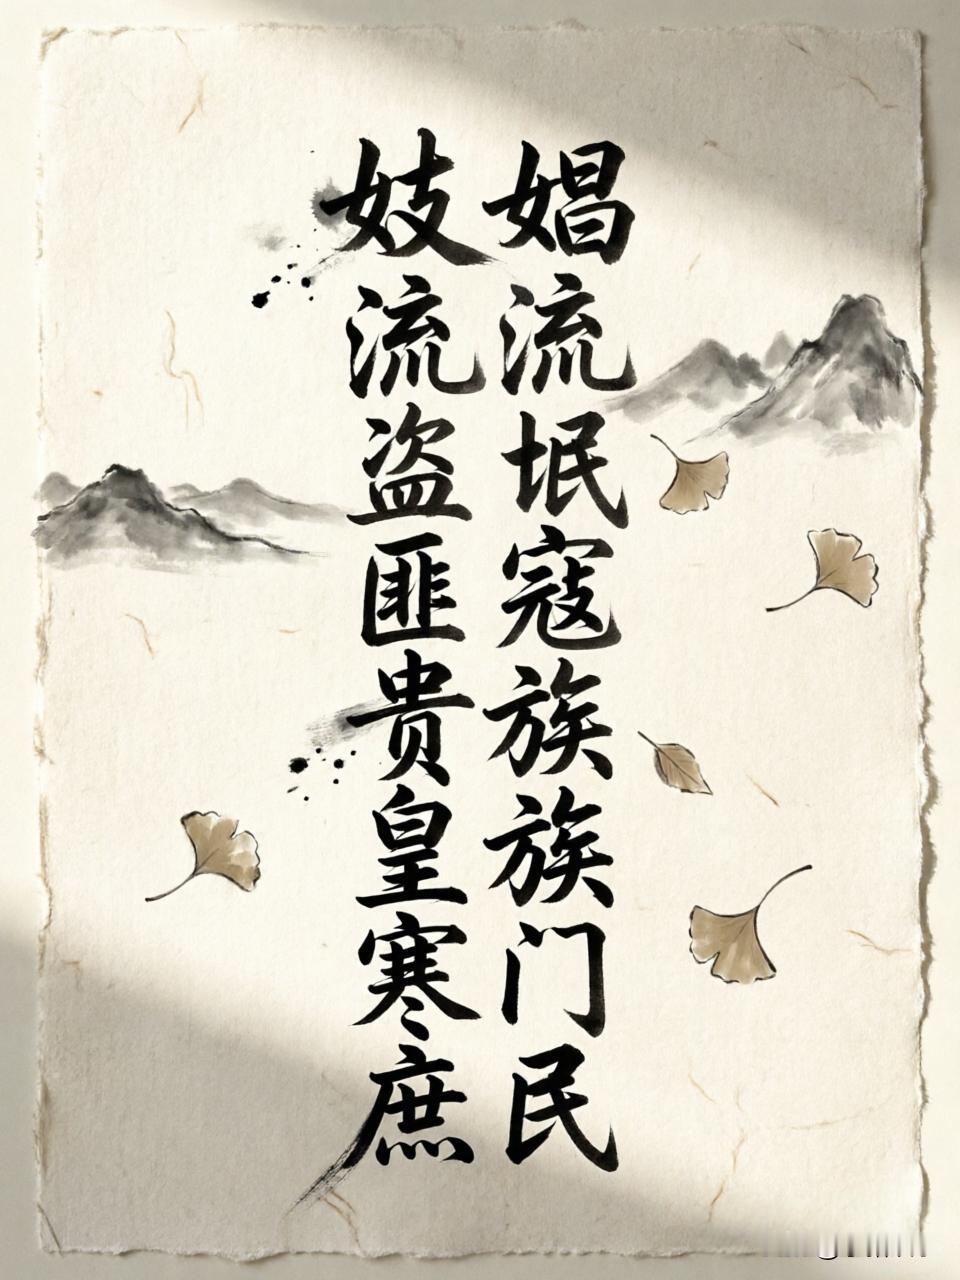 妓娼
流流
盗垊
匪寇
贵族
皇族
寒门
庶民